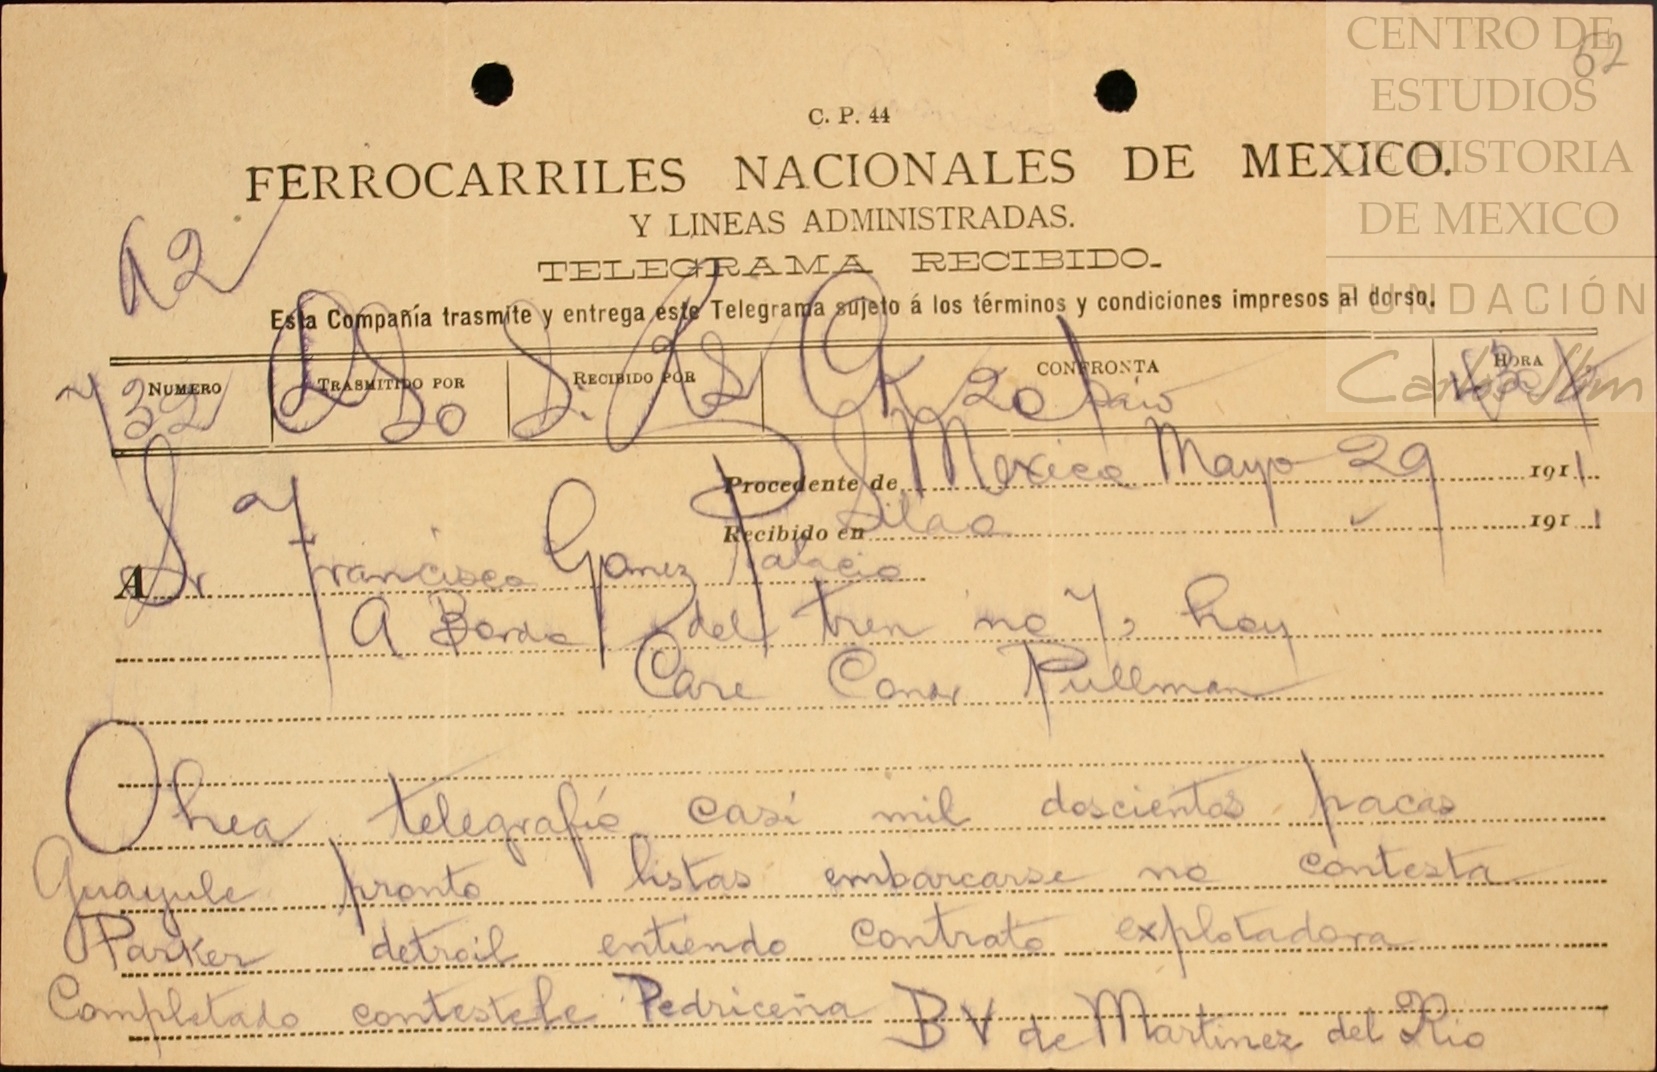 CENTRO DE
ESTUDIOS
DE HISTORIA
DE MEXICO
FUNDACIÓN
Carlos Slim
62
C. P. 44
FERROCARRILES NACIONALES DE MEXICO.
Y LINEAS ADMINISTRADAS.
TELEGRAMA RECIBIDO.
62
Esta Compañía trasmite y entrega este Telegrama sujeto á los términos y condiciones impresos al dorso.
NUMERO TRASMITIDO POR RECIBIDO POR CONFRONTA HORA
32 20
Procedente de Mexico Mayo 29 1911
Recibido en Silao 1911
A Sr Francisco Gomez Palacio
A Bordo del tren no 7, hoy
Care Pullman
Ohea telegrafió casi mil doscientas pacas
Guayule pronto listas embarcarse no contesta
Parker detroil entiendo contrato explotadora
Completado contestele Pedriceña B V de Martinez del Rio